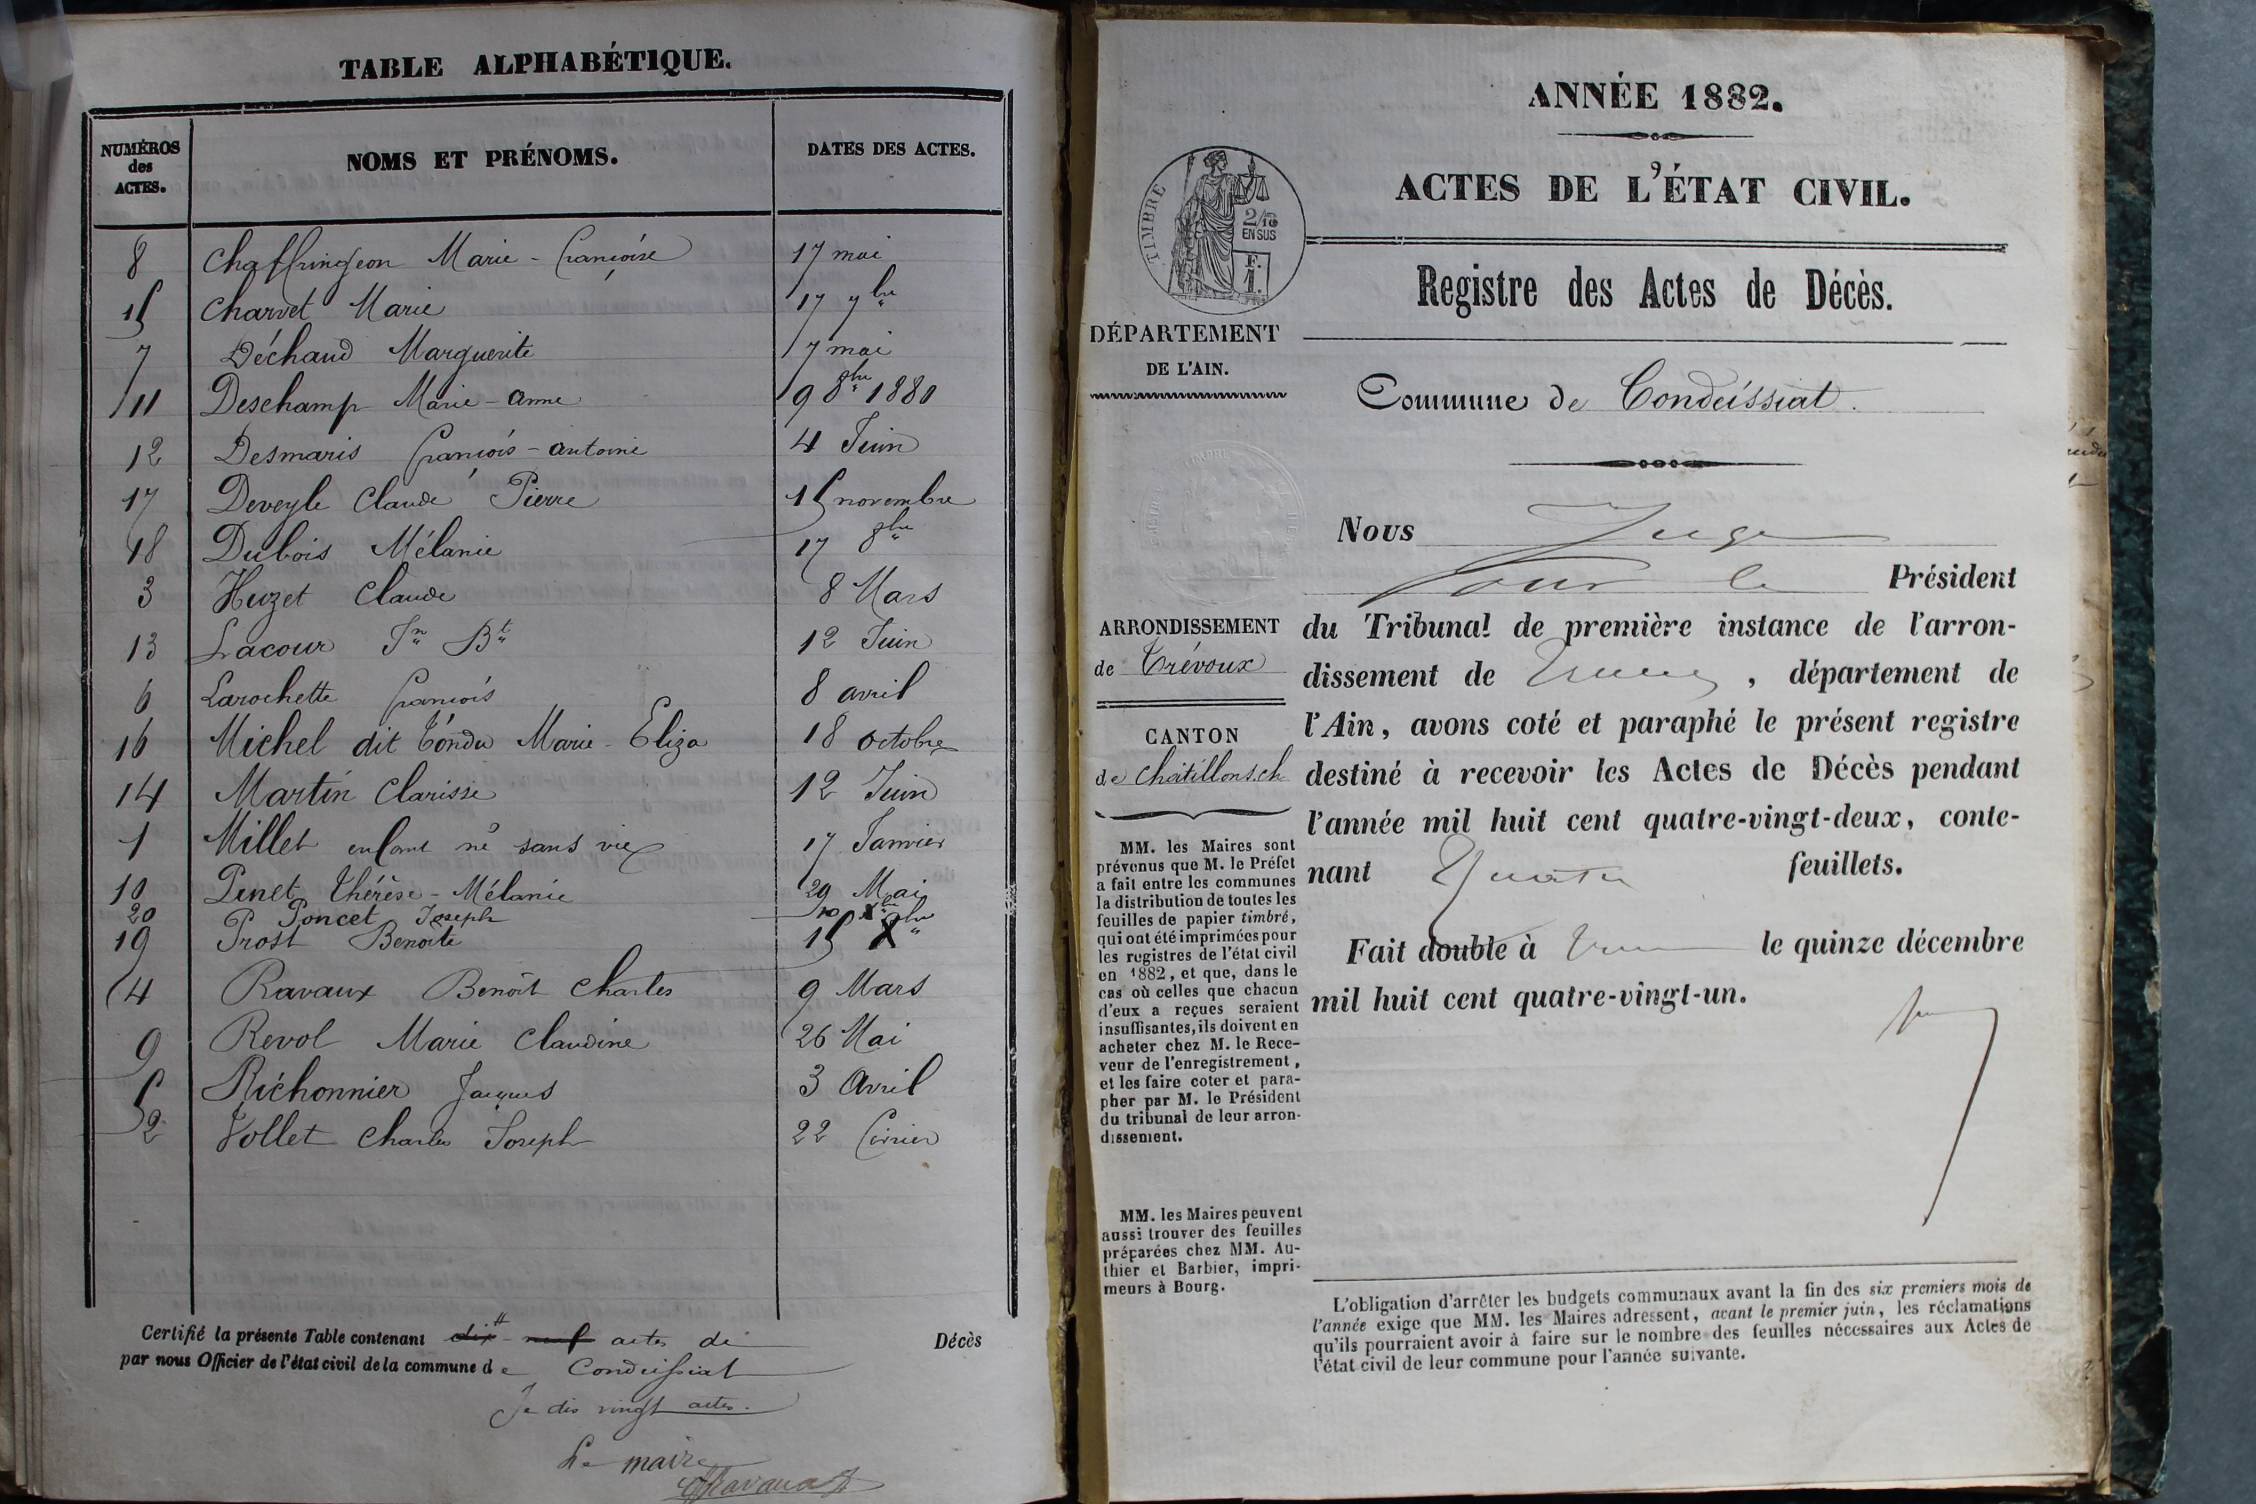 TABLE ALPHABÉTIQUE.
NUMÉROS des ACTES. NOMS ET PRÉNOMS. DATES DES ACTES.
8 Chaffringeon Marie-Françoise 17 mai
15 Charvet Marie 17 7bre
7 Déchaud Marguerite 7 mai
11 Deschamp Marie-anne 9 8bre 1880
12 Desmaris françois-antoine 4 Juin
17 Deveyle Claude Pierre 15 novembre
18 Dubois Mélanie 17 8bre
3 Huzet Claude 8 Mars
13 Lacour Jn Bt 12 Juin
6 Larochette françois 8 avril
16 Michel dit Tondu Marie-Eliza 18 octobre
14 Martin Clarisse 12 Juin
1 Millet enfant né sans vie 17 Janvier
10 Penet Thérèse-Mélanie 29 Mai
20 Poncet Joseph 10 Xbre
19 Prost Benoîte 15 Xbre
4 Ravaux Benoît Charles 9 Mars
9 Revol Marie Claudine 26 Mai
5 Richonnier Jacques 3 avril
2 Vollet Charles Joseph 22
Certifié la présente Table contenant dix-neuf actes de Décès
par nous Officier de l'état civil de la commune de Condeissiat
Je dis vingt actes.
Le maire
ANNÉE 1882.
ACTES DE L'ÉTAT CIVIL.
TIMBRE
2/10
EN SUS
F.
1.
Registre des Actes de Décès.
DÉPARTEMENT
DE L'AIN.
Commune de Condeissiat.
ARRONDISSEMENT
de Trévoux
CANTON
de Châtillon s. ch
MM. les Maires sont
prévenus que M. le Préfet
a fait entre les communes
la distribution de toutes les
feuilles de papier timbré,
qui ont été imprimées pour
les registres de l'état civil
en 1882, et que, dans le
cas où celles que chacun
d'eux a reçues seraient
insuffisantes, ils doivent en
acheter chez M. le Rece-
veur de l'enregistrement,
et les faire coter et para-
pher par M. le Président
du tribunal de leur arron-
dissement.
MM. les Maires peuvent
aussi trouver des feuilles
préparées chez MM. Au-
thier et Barbier, impri-
meurs à Bourg.
Nous Juge
Pour le Président
du Tribunal de première instance de l'arron-
dissement de , département de
l'Ain, avons coté et paraphé le présent registre
destiné à recevoir les Actes de Décès pendant
l'année mil huit cent quatre-vingt-deux, conte-
nant quatre feuillets.
Fait double à le quinze décembre
mil huit cent quatre-vingt-un.
L'obligation d'arrêter les budgets communaux avant la fin des six premiers mois de
l'année exige que MM. les Maires adressent, avant le premier juin, les réclamations
qu'ils pourraient avoir à faire sur le nombre des feuilles nécessaires aux Actes de
l'état civil de leur commune pour l'année suivante.